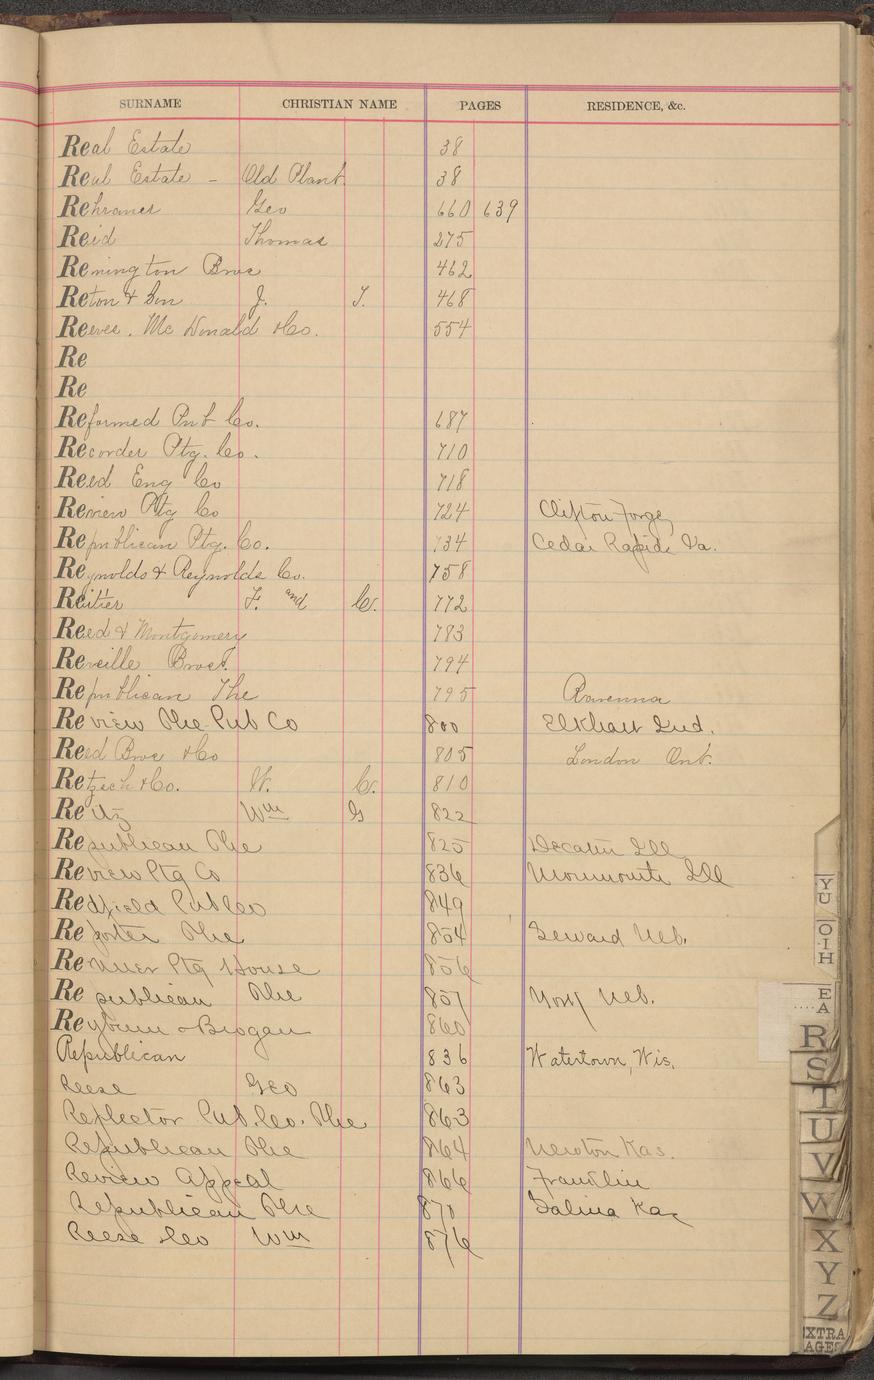 SURNAME CHRISTIAN NAME PAGES RESIDENCE, &c.
Real Estate 38
Real Estate - Old Plant. 38
Rehraner Geo 660 639
Reid Thomas 275
Remington Bros 462
Reton & Son J. T. 468
Reeves. Mc Donald & Co. 554
Re
Re
Reformed Pub Co. 687
Recorder Ptg. Co. 710
Reed Eng Co 718
Review Ptg Co 724 Clifton Forge,
Republican Ptg. Co. 734 Cedar Rapids Va.
Reynolds & Reynolds Co. 758
Reitier F. and C. 772
Reed & Montgomery 783
Reveille Bros. 794
Republican The 795 Ravenna
Review The Pub Co 800 Elkhart Ind.
Reed Bros & Co 805 London Ont.
Retzch & Co. W. C. 810
Reitz Wm G 822
Republican The 825 Decatur Ill
Review Ptg Co 836 Monmouth Ill
Redfield Pub Co 849
Reporter The 854 Seward Neb.
Renner Ptg House 856
Republican The 857 York Neb.
Reyburn & Brogan 860
Republican 836 Watertown, Wis.
Reese Geo 863
Reflector Pub. Co. The 863
Republican The 864 Newton Kas.
Review Appeal 866 Franklin
Republican The 870 Salina Kas
Reese Co Wm 876
YU
O·I·H
EA
R
S
T
U
V
W
X
Y
Z
EXTRA
PAGES